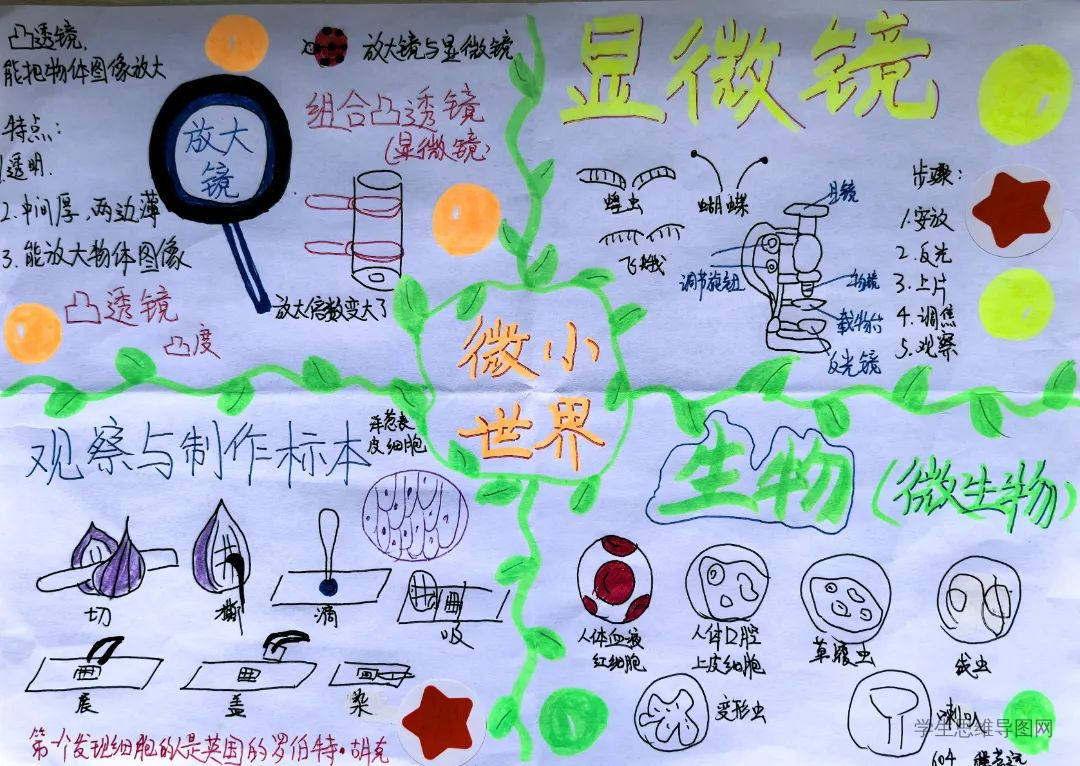 凸透镜.
能把物体图像放大
放大镜与显微镜
特点:
1.透明.
2.中间厚.两边薄
3.能放大物体图像
凸透镜
凸度
放大
镜
组合凸透镜
(显微镜)
放大倍数变大了
显微镜
蜂虫
蝴蝶
飞蛾
目镜
调节旋钮
物镜
载物台
反光镜
步骤:
1.安放
2.反光
3.上片
4.调焦
5.观察
微小
世界
观察与制作标本
洋葱表
皮细胞
切
撕
滴
吸
展
盖
染
第一个发现细胞的人是英国的罗伯特·胡克
生物(微生物)
人体血液
红细胞
人体口腔
上皮细胞
草履虫
线虫
变形虫
学生思维导图网
604